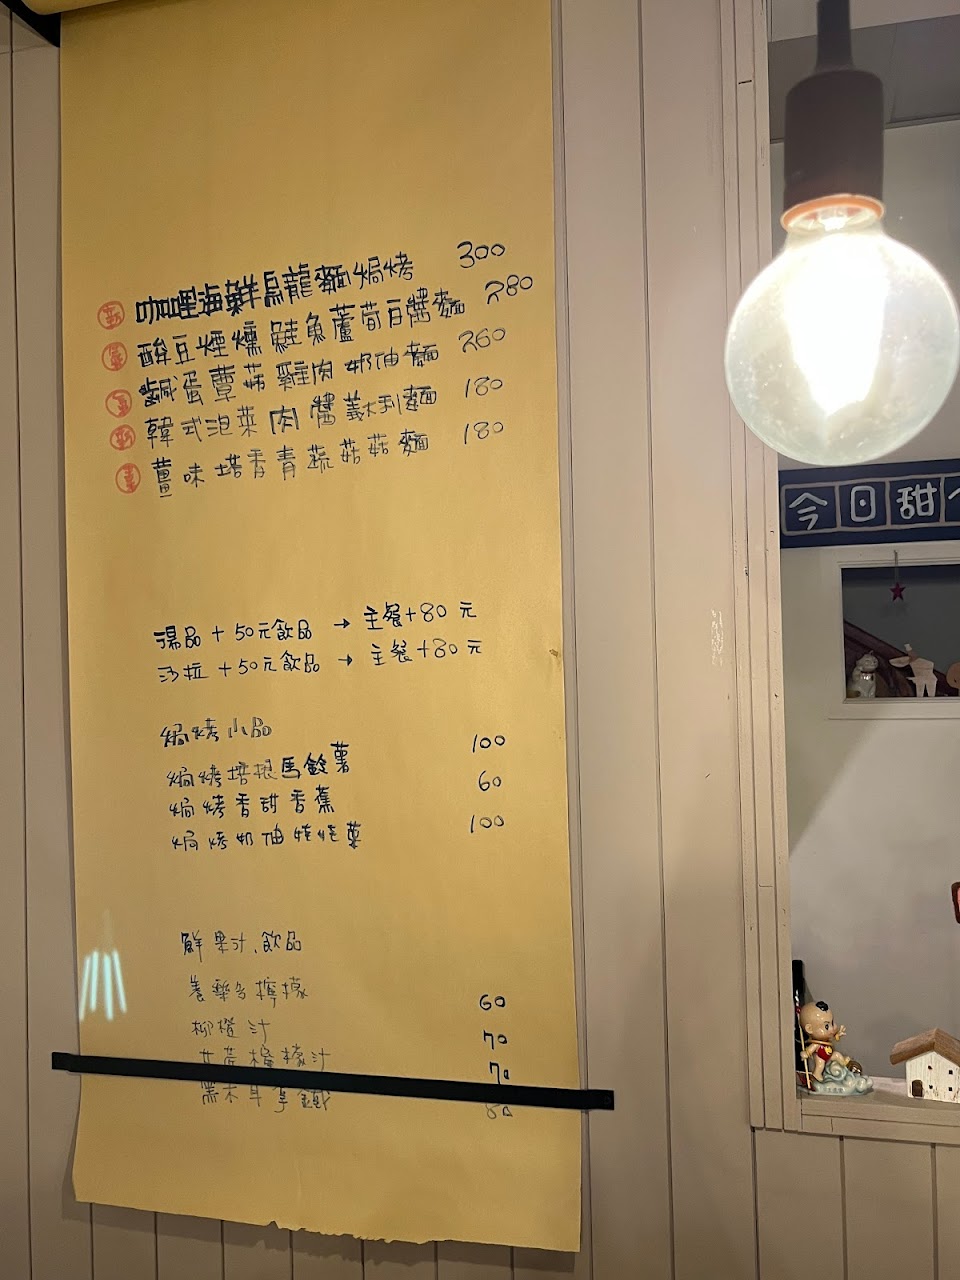 咖哩海鮮烏龍麵焗烤 300
酸豆煙燻鮭魚蘆筍白醬麵 280
鹹蛋蕈菇雞肉奶油麵 260
韓式泡菜肉醬義大利麵 180
薑味塔香青蔬菇菇麵 180
湯品+50元飲品→主餐+80元
沙拉+50元飲品→主餐+80元
焗烤小品
焗烤培根馬鈴薯 100
焗烤香甜香蕉 60
焗烤奶油娃娃菜 100
鮮果汁、飲品
養樂多檸檬 60
柳橙汁 70
檸檬汁 70
黑木耳拿鐵 80
今日甜